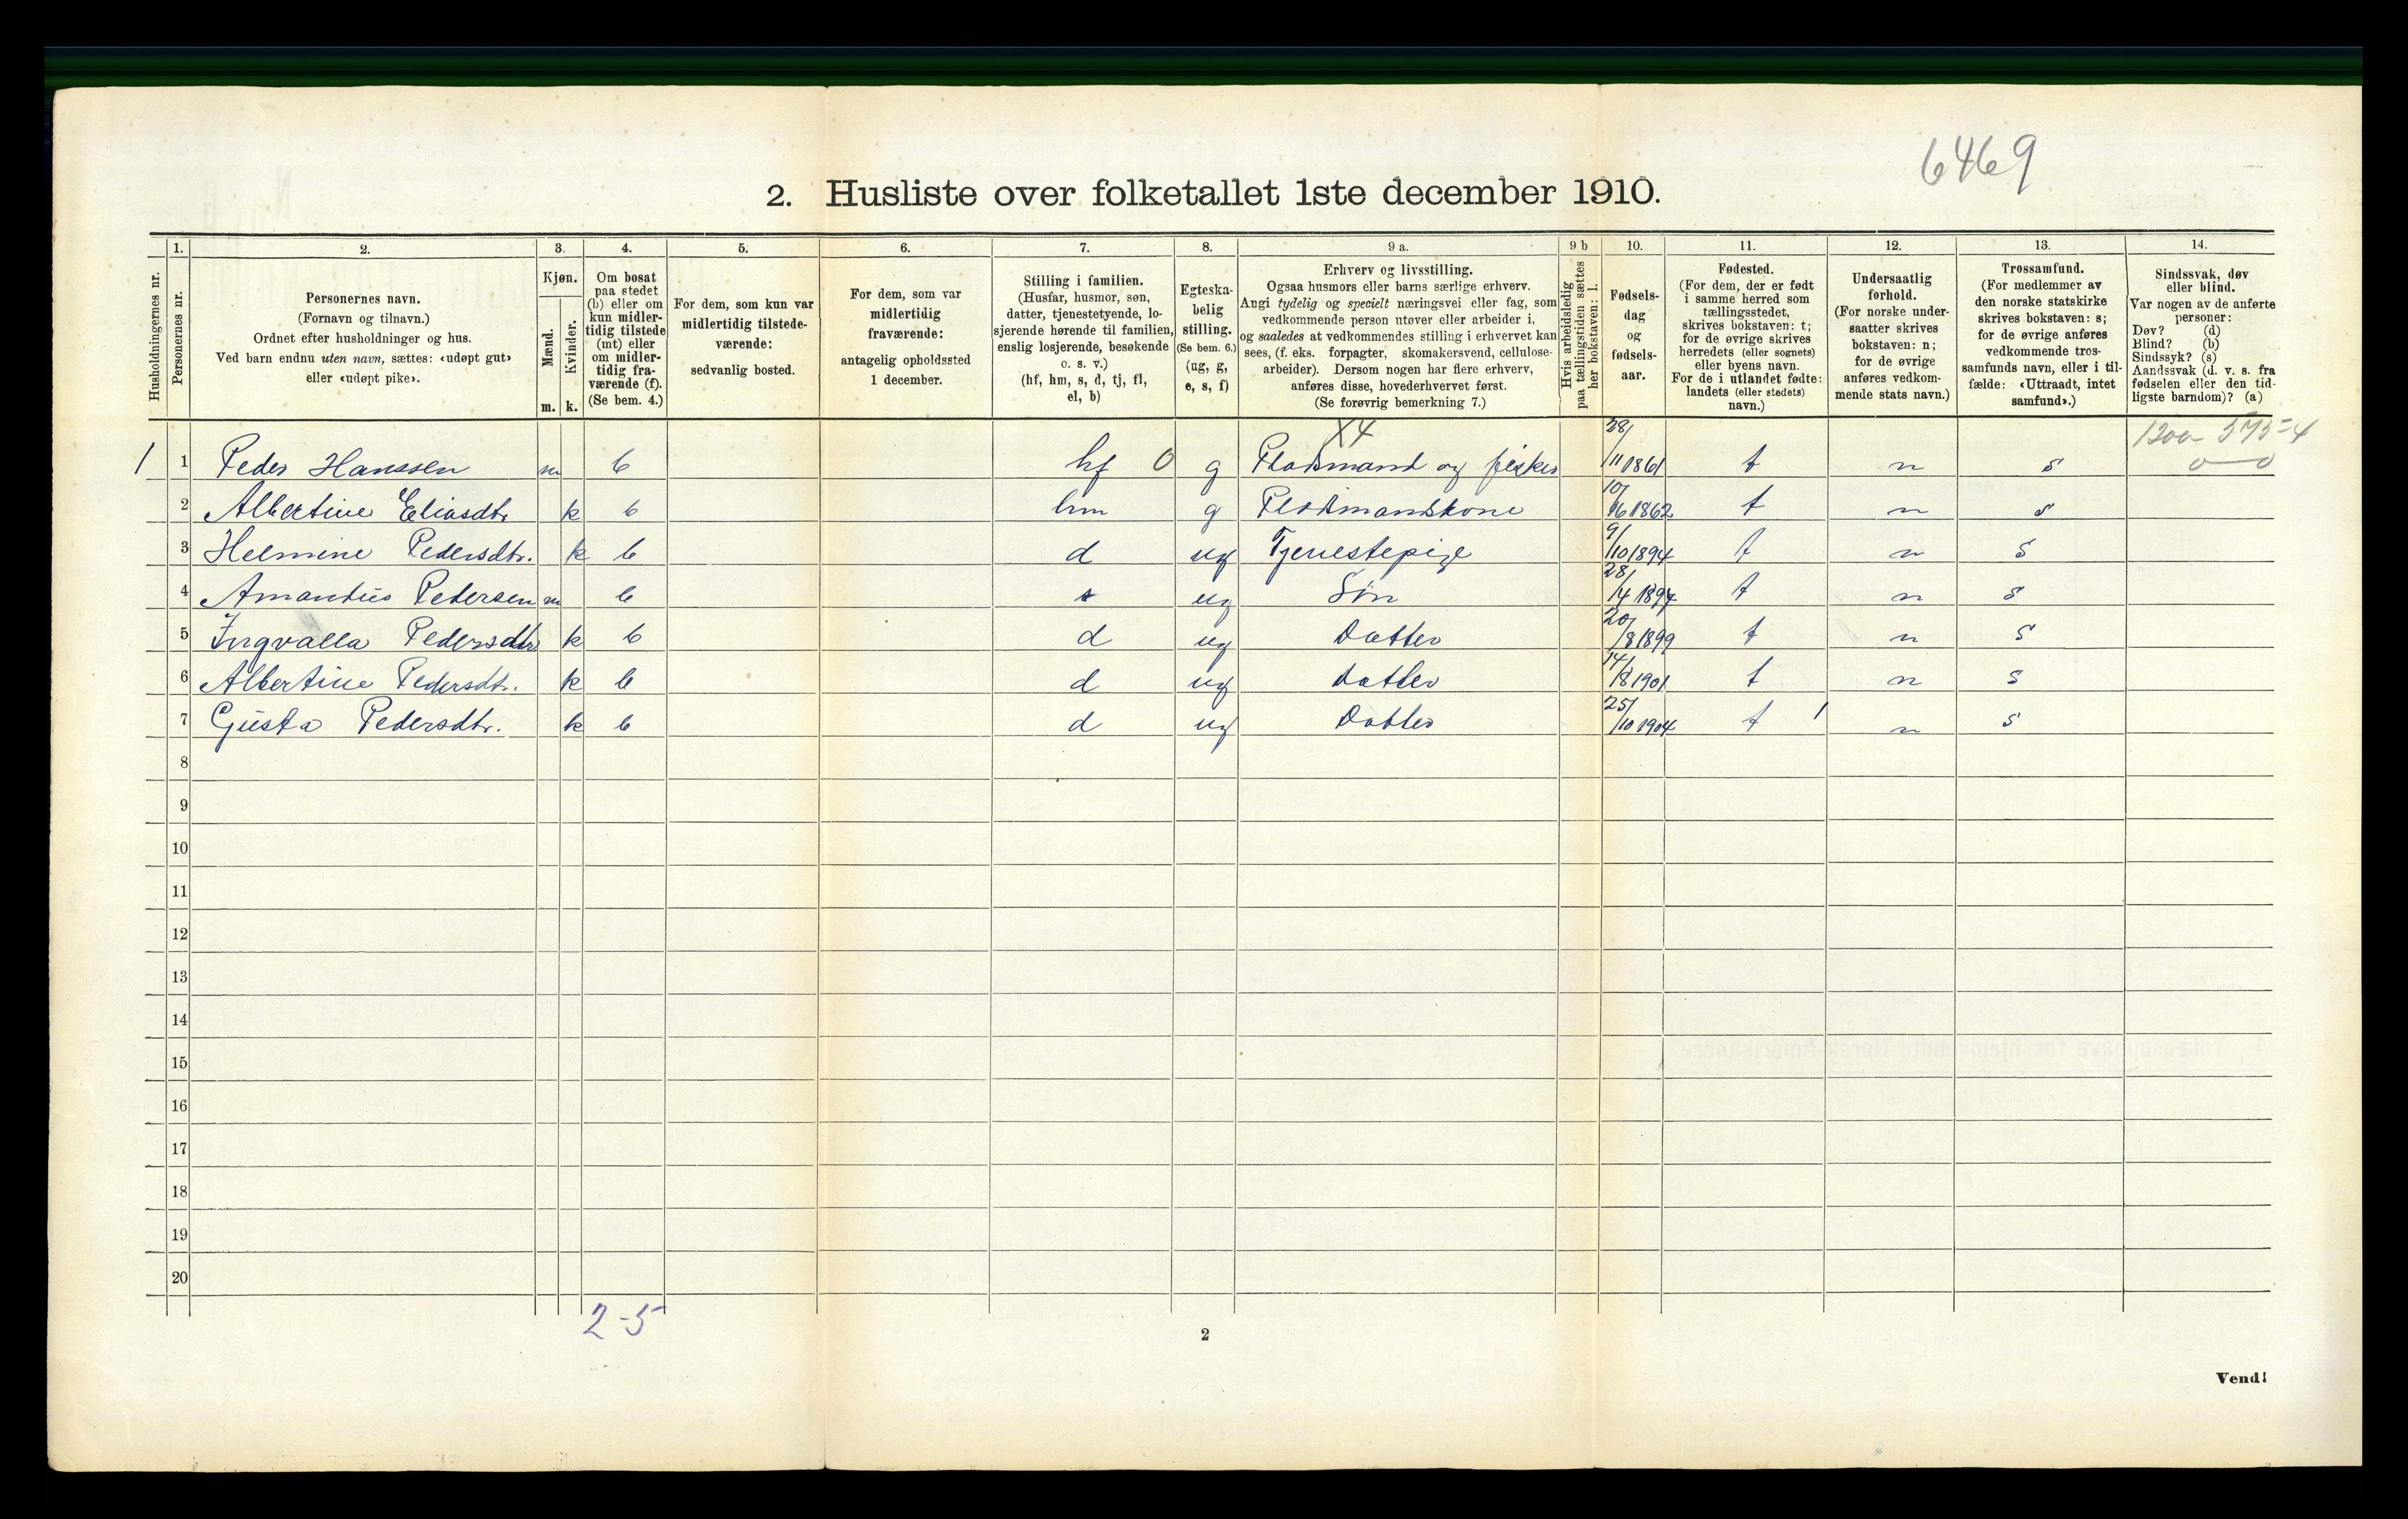 6469
2. Husliste over folketallet 1ste december 1910.
Husholdningernes nr.
1.
Personernes nr.
2.
Personernes navn.
(Fornavn og tilnavn.)
Ordnet efter husholdninger og hus.
Ved barn endnu uten navn, sættes: «udøpt gut»
eller «udøpt pike».
3.
Kjøn.
Mænd.
Kvinder.
m. k.
4.
Om bosat
paa stedet
(b) eller om
kun midler-
tidig tilstede
(mt) eller
om midler-
tidig fra-
værende (f).
(Se bem. 4.)
5.
For dem, som kun var
midlertidig tilstede-
værende:
sedvanlig bosted.
6.
For dem, som var
midlertidig
fraværende:
antagelig opholdssted
1 december.
7.
Stilling i familien.
(Husfar, husmor, søn,
datter, tjenestetyende, lo-
sjerende hørende til familien,
enslig losjerende, besøkende
o. s. v.)
(hf, hm, s, d, tj, fl,
el, b)
8.
Egteska-
belig
stilling.
(Se bem. 6.)
(ug, g,
e, s, f)
9 a.
Erhverv og livsstilling.
Ogsaa husmors eller barns særlige erhverv.
Angi tydelig og specielt næringsvei eller fag, som
vedkommende person utøver eller arbeider i,
og saaledes at vedkommendes stilling i erhvervet kan
sees, (f. eks. forpagter, skomakersvend, cellulose-
arbeider). Dersom nogen har flere erhverv,
anføres disse, hovederhvervet først.
(Se forøvrig bemerkning 7.)
9 b
Hvis arbeidsledig
paa tællingstiden sættes
her bokstaven: l.
10.
Fødsels-
dag
og
fødsels-
aar.
11.
Fødested.
(For dem, der er født
i samme herred som
tællingsstedet,
skrives bokstaven: t;
for de øvrige skrives
herredets (eller sognets)
eller byens navn.
For de i utlandet fødte:
landets (eller stedets)
navn.)
12.
Undersaatlig
forhold.
(For norske under-
saatter skrives
bokstaven: n;
for de øvrige
anføres vedkom-
mende stats navn.)
13.
Trossamfund.
(For medlemmer av
den norske statskirke
skrives bokstaven: s;
for de øvrige anføres
vedkommende tros-
samfunds navn, eller i til-
fælde: «Uttraadt, intet
samfund».)
14.
Sindssvak, døv
eller blind.
Var nogen av de anførte
personer:
Døv? (d)
Blind? (b)
Sindssyk? (s)
Aandssvak (d. v. s. fra
fødselen eller den tid-
ligste barndom)? (a)
X4
1 1 Peder Hanssen m b hf 0 g Pladsmand og fisker 28/11 1861 t n s
2 Albertine Eliasdtr k b hm g Pladsmandskone 10/6 1862 t n s
3 Helmine Pedersdtr. k b d ug Tjenestepige 9/10 1894 t n s
4 Amandus Pedersen m b s ug Søn 28/4 1897 t n s
5 Ingvalla Pedersdtr k b d ug Datter 20/8 1899 t n s
6 Albertine Pedersdtr. k b d ug datter 14/8 1901 t n s
7 Gusta Pedersdtr. k b d ug Datter 25/10 1904 t 1 n s
8
9
10
11
12
13
14
15
16
17
18
19
20
2-5
2
Vend!